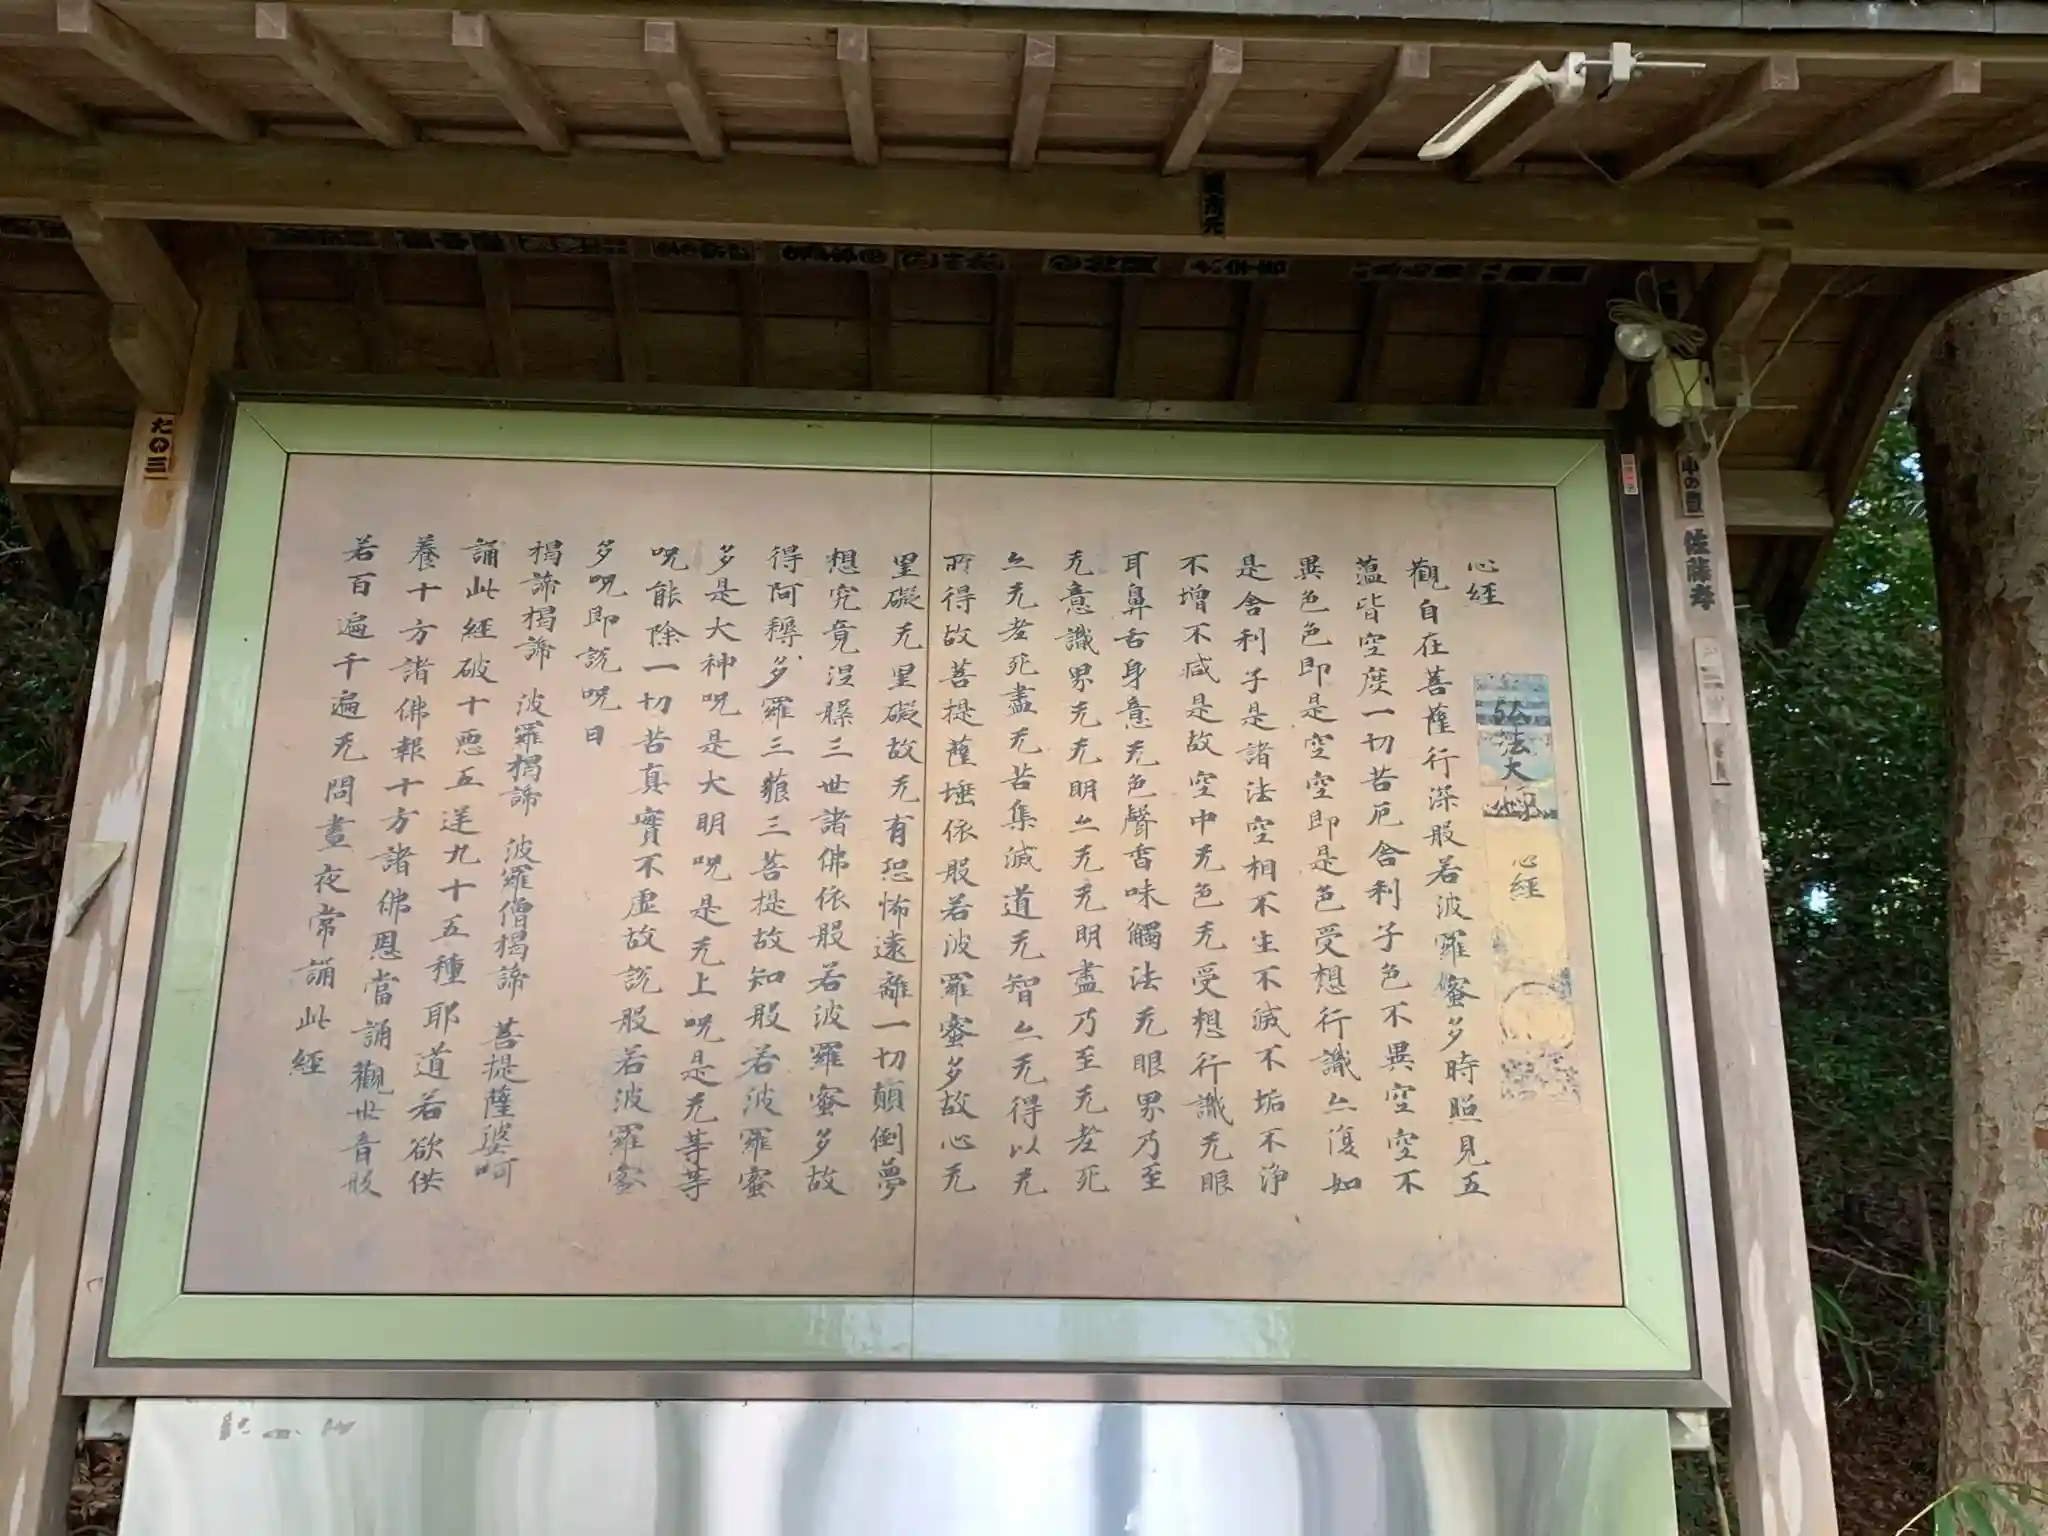 心経
弘法大師
心経
觀自在菩薩行深般若波羅蜜多時照見五
薀皆空度一切苦厄舎利子色不異空空不
異色色即是空空即是色受想行識亠復如
是舎利子是諸法空相不生不滅不垢不浄
不增不减是故空中无色无受想行識无眼
耳鼻舌身意无色聲香味觸法无眼界乃至
无意識界无无明亠无无明盡乃至无老死
亠无老死盡无苦集滅道无智亠无得以无
所得故菩提薩埵依般若波羅蜜多故心无
罣礙无罣礙故无有恐怖遠離一切顛倒夢
想究竟涅槃三世諸佛依般若波羅蜜多故
得阿耨多羅三藐三菩提故知般若波羅蜜
多是大神呪是大明呪是无上呪是无等等
呪能除一切苦真實不虚故説般若波羅蜜
多呪即説呪曰
揭諦揭諦 波羅揭諦 波羅僧揭諦 菩提薩婆呵
誦此經破十惡五逆九十五種耶道若欲供
養十方諸佛報十方諸佛恩當誦觀世音般
若百遍千遍无問晝夜常誦此經
たの三
佐藤孝